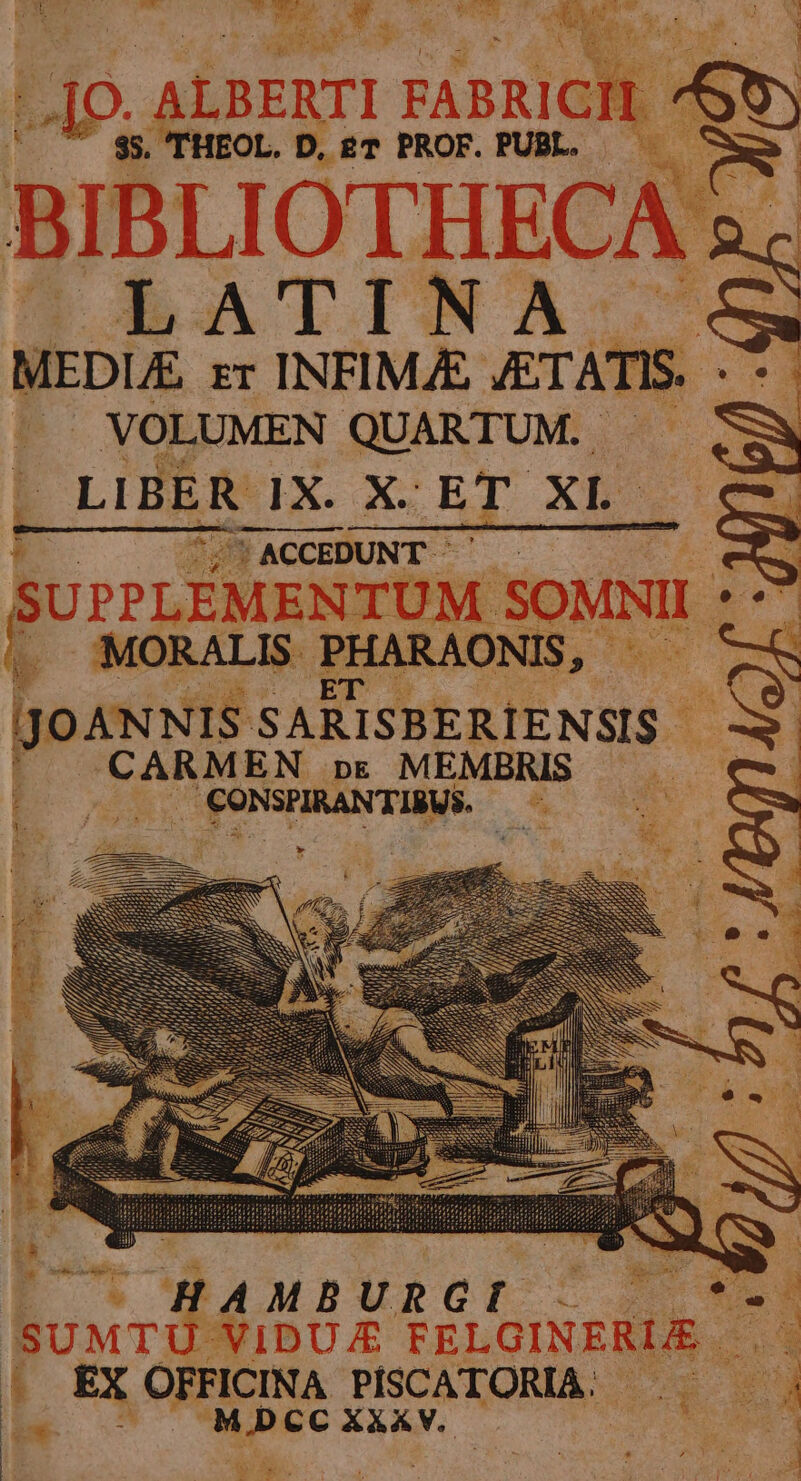 JO. ALBERTI FABRICII
SS. THEOL. D. ET PROF. PUBL.
BIBLIOTHECA
LATINA
MEDIÆ ET INFIMÆ ÆTATIS.
VOLUMEN QUARTUM.
LIBER IX. X. ET XI.
ACCEDUNT
SUPPLEMENTUM SOMNII
MORALIS PHARAONIS,
ET
JOANNIS SARISBERIENSIS
CARMEN DE MEMBRIS
CONSPIRANTIBUS.
HAMBURGI
SUMTU VIDUÆ FELGINERIÆ
EX OFFICINA PISCATORIA.
MDCCXXXV.